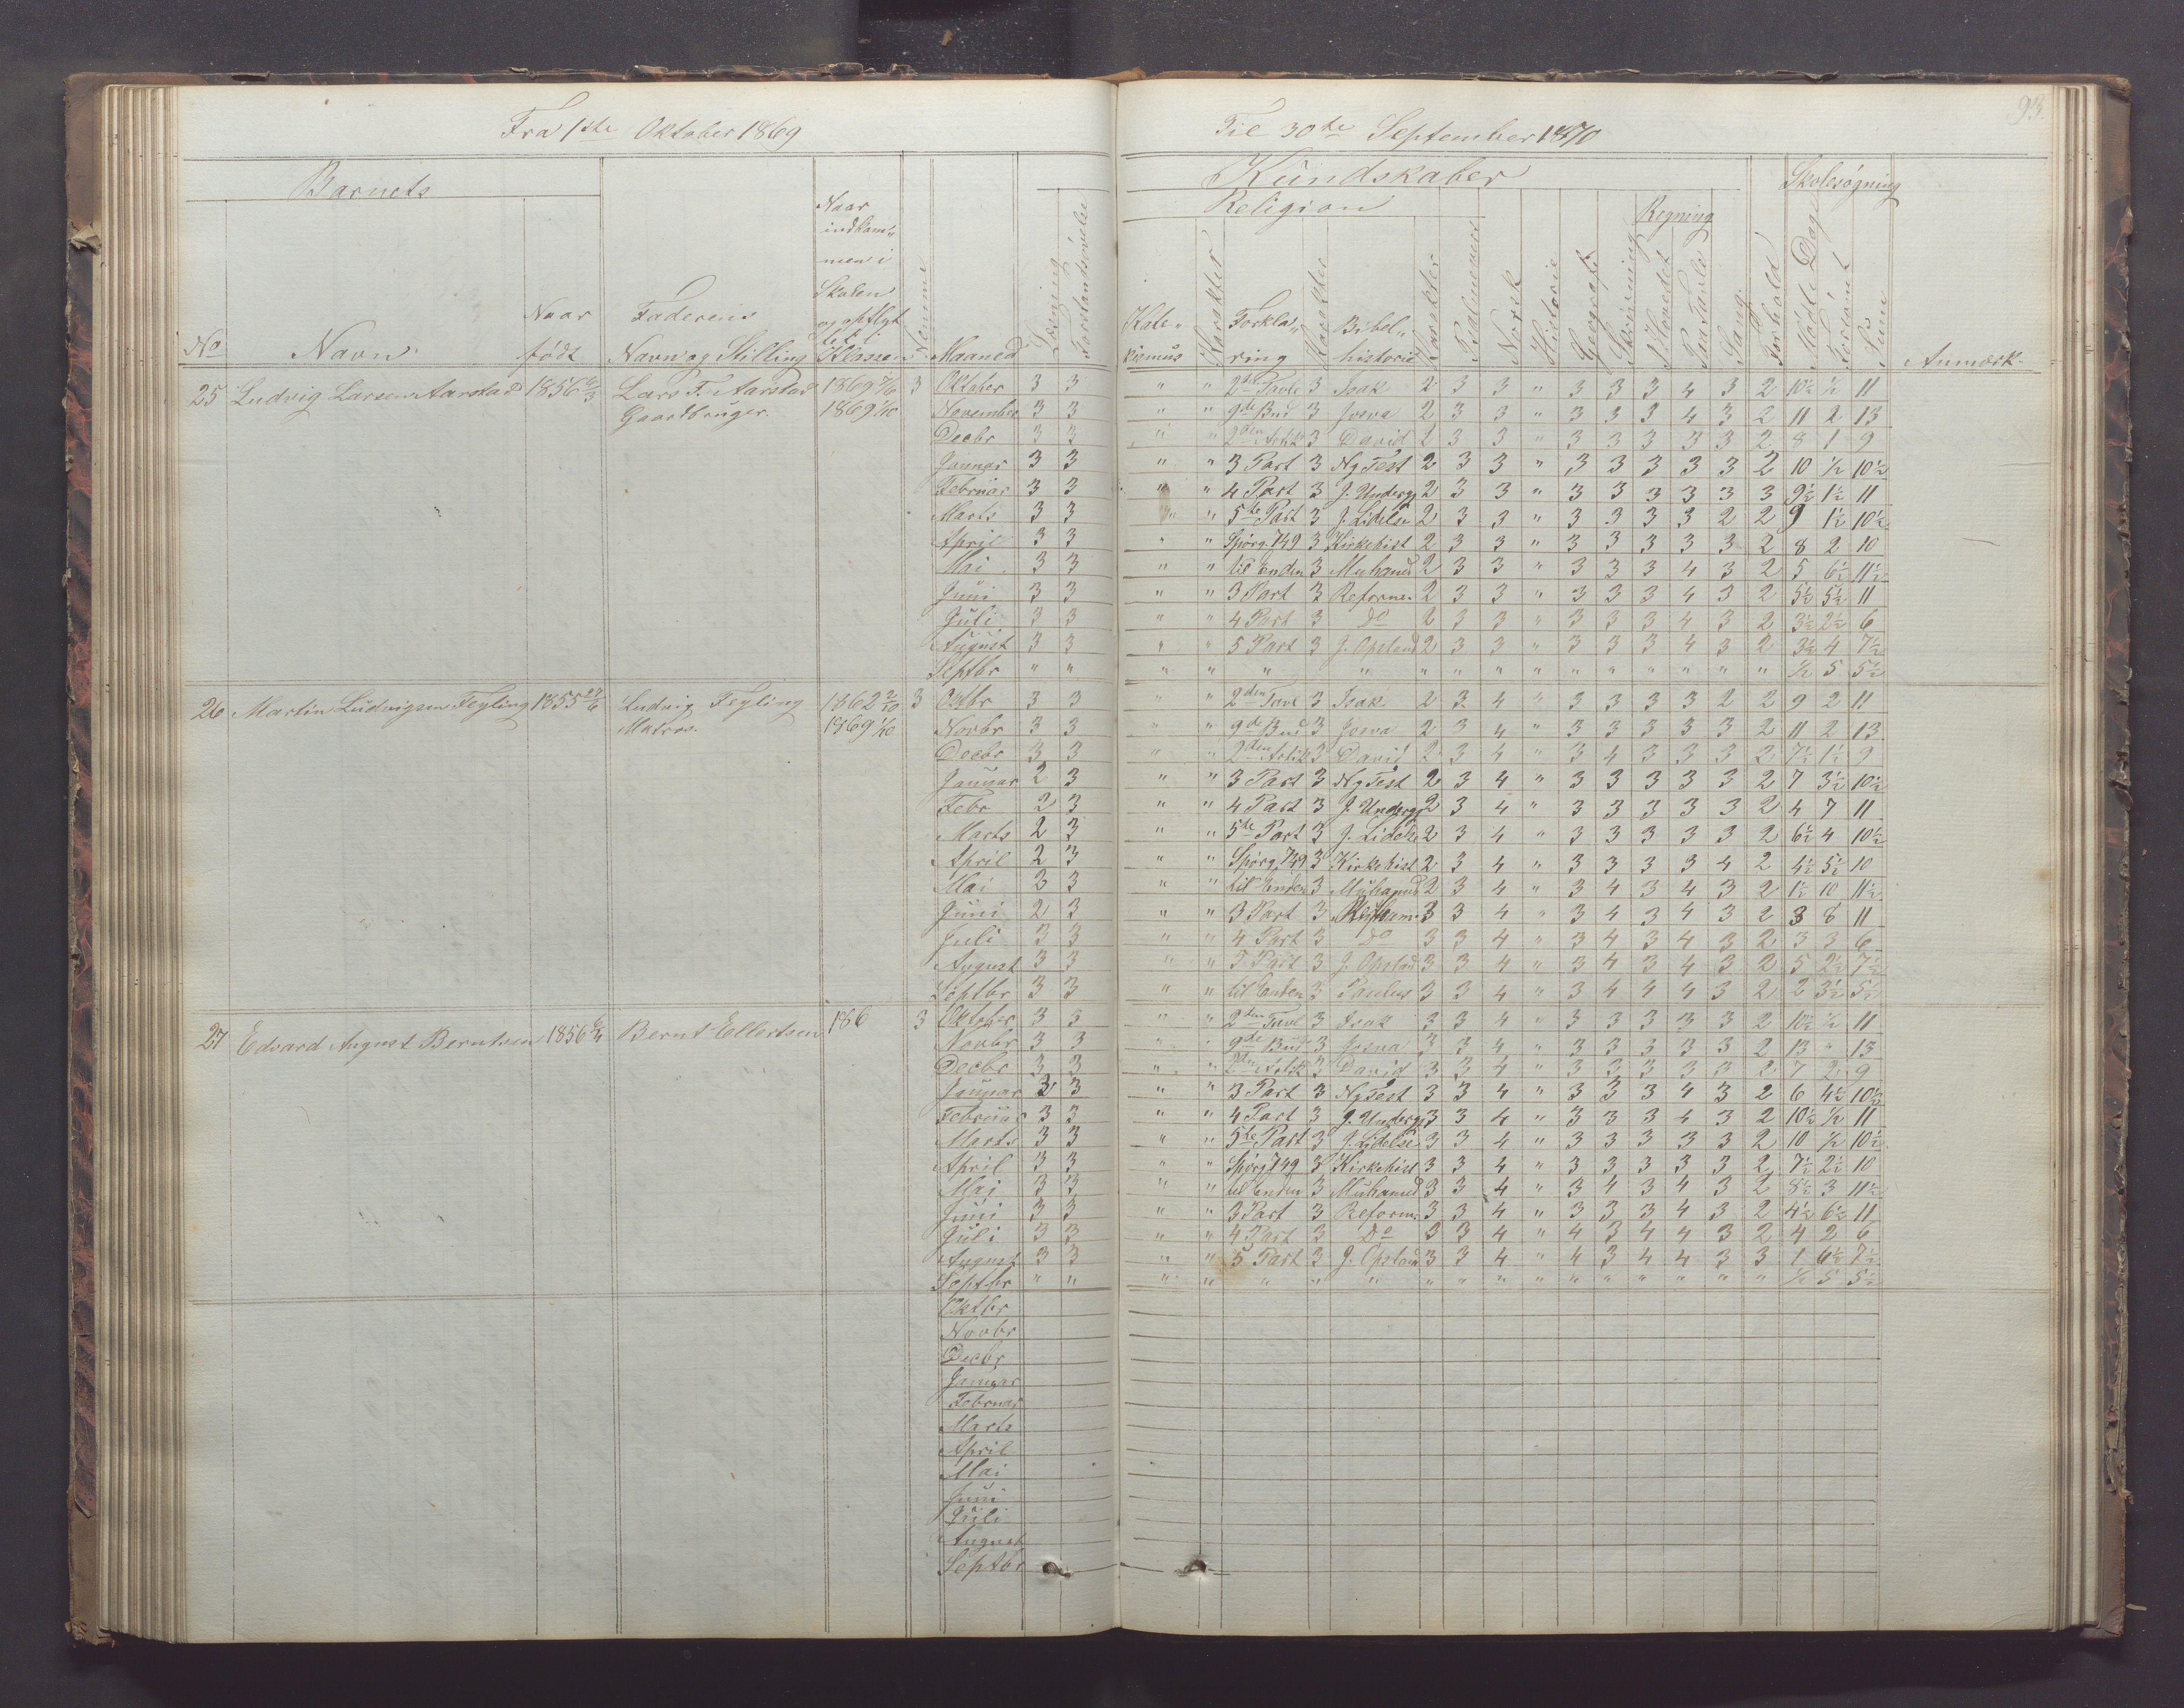 Fra 1ste Oktober 1869
Til 30te September 1870
93.
Barnets
No
Navn
Naar født
Faderens Navn og Stilling
Naar indkommen i Skolen og opflyttet i Klasse
Maaned
Læsning
Forstandsøvelse
Kundskaber
Religion
Katekismus
Karakter
Forklaring
Karakter
Bibelhistorie
Karakter
Psalmevers
Norsk
Historie
Geografi
Skrivning
Regning
I Hovedet
Paa Tavle
Sang
Forhold
Skolesøgning
Mødte Dage
Forsømt
Sum
Anmærk.
25 Ludvig Larsen Aarstad 1856 Lars T. Aarstad 1869 3 Oktober 3 3 " " 2den Tavle 3 Isak 2 3 3 " 3 3 3 4 3 2 10½ ½ 11
Gaardbruger. 1869 1/10 November 3 3 " " 9de Bud 3 Josva 2 3 3 " 3 3 3 4 3 2 11 2 13
Decbr 3 3 " " 2den Artik 3 David 2 3 3 " 3 3 3 3 3 2 8 1 9
Januar 3 3 " " 3 Part 3 Ny Test 2 3 3 " 3 3 3 3 3 2 10 ½ 10½
Februar 3 3 " " 4 Part 3 J. Undergj 2 3 3 " 3 3 3 3 3 3 9½ 1½ 11
Marts 3 3 " " 5te Part 3 J. Lidelse 2 3 3 " 3 3 3 3 2 2 9 1½ 10½
April 3 3 " " Spørg. 749 3 Kirkehist 2 3 3 " 3 3 3 3 3 2 8 2 10
Mai 3 3 " " til Enden 3 Muhamed 2 3 3 " 3 3 3 4 3 2 5 6½ 11½
Juni 3 3 " " 3 Part 3 Reform. 2 3 3 " 3 3 3 4 3 2 5½ 5½ 11
Juli 3 3 " " 4 Part 3 Do 2 3 3 " 3 3 3 4 3 2 3½ 2½ 6
August 3 3 " " 5 Part 3 J. Opstand 2 3 3 " 3 3 3 4 3 2 3½ 4 7½
Septbr " " " " " " " " " " " " " " " " ½ 5 5½
26 Martin Ludvigsen Feyling 1855 27/6 Ludvig Feyling 1862 2/10 3 Octbr 3 3 " " 2den Tavl 3 Isak 2 3 4 " 3 3 3 3 2 2 9 2 11
Matros. 1869 1/10 Novbr 3 3 " " 9de Bud 3 Josva 2 3 4 " 3 3 3 3 3 2 11 2 13
Decbr 3 3 " " 2den Artik 3 David 2 3 4 " 3 4 3 3 3 2 7½ 1½ 9
Januar 2 3 " " 3 Part 3 Ny Test 2 3 4 " 3 3 3 3 3 2 7 3½ 10½
Febr 2 3 " " 4 Part 3 J. Undergj 2 3 4 " 3 3 3 3 3 2 4 7 11
Marts 2 3 " " 5te Part 3 J. Lidelse 2 3 4 " 3 3 3 3 3 2 6½ 4 10½
April 2 3 " " Spørg. 749 3 Kirkehist 2 3 4 " 3 3 3 3 4 2 4½ 5½ 10
Mai 2 3 " " til Enden 3 Muhamed 2 3 4 " 3 4 3 4 3 2 1½ 10 11½
Juni 2 3 " " 3 Part 3 3 3 4 " 3 4 3 4 3 2 3 8 11
Juli 3 3 " " 4 Part 3 Do 3 3 4 " 3 4 3 4 3 2 3 3 6
August 3 3 " " 5 Part 3 J. Opstand 3 3 4 " 3 4 3 4 3 2 5 2½ 7½
Septbr 3 3 " " til Enden 3 Paulus 3 3 4 " 3 4 4 4 3 2 2 3½ 5½
27 Edvard August Berntsen 1856 Bernt Ellertsen 186 3 Oktober 3 3 " " 2den Tavl 3 Isak 3 3 4 " 3 3 3 3 3 2 10½ ½ 11
Novbr 3 3 " " 9de Bud 3 Josva 3 3 4 " 3 3 3 3 3 2 13 " 13
Decbr 3 3 " " 2den Artik 3 David 3 3 4 " 3 3 3 3 3 2 7 2 9
Januar 3 3 " " 3 Part 3 Ny Test 3 3 4 " 3 3 3 4 3 2 6 4½ 10½
Februar 3 3 " " 4 Part 3 J. Undergj 3 3 4 " 3 3 3 4 3 2 10½ ½ 11
Marts 3 3 " " 5te Part 3 J. Lidelse 3 3 4 " 3 3 3 3 3 2 10 ½ 10½
April 3 3 " " Spørg 749 3 Kirkehist 3 3 4 " 3 3 3 3 3 2 7½ 2½ 10
Mai 3 3 " " til Enden 3 Muhamed 3 3 4 " 3 4 3 4 3 2 8½ 3 11½
Juni 3 3 " " 3 Part 3 Reform. 3 3 4 " 3 3 3 4 3 2 4½ 6½ 11
Juli 3 3 " " 4 Part 3 Do 3 3 4 " 4 3 4 4 3 2 4 2 6
August 3 3 " " 5 Part 3 J. Opstand 3 3 4 " 4 3 4 4 3 3 1 6½ 7½
Septbr " " " " " " " " " " " " " " " " ½ 5 5½
Oktbr
Novbr
Decbr
Januar
Februar
Marts
April
Mai
Juni
Juli
August
Septbr